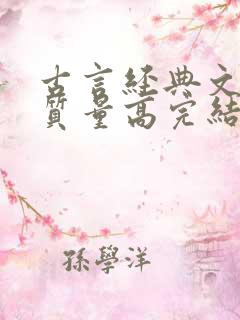 古言經典文
質量高完結
孫學洋